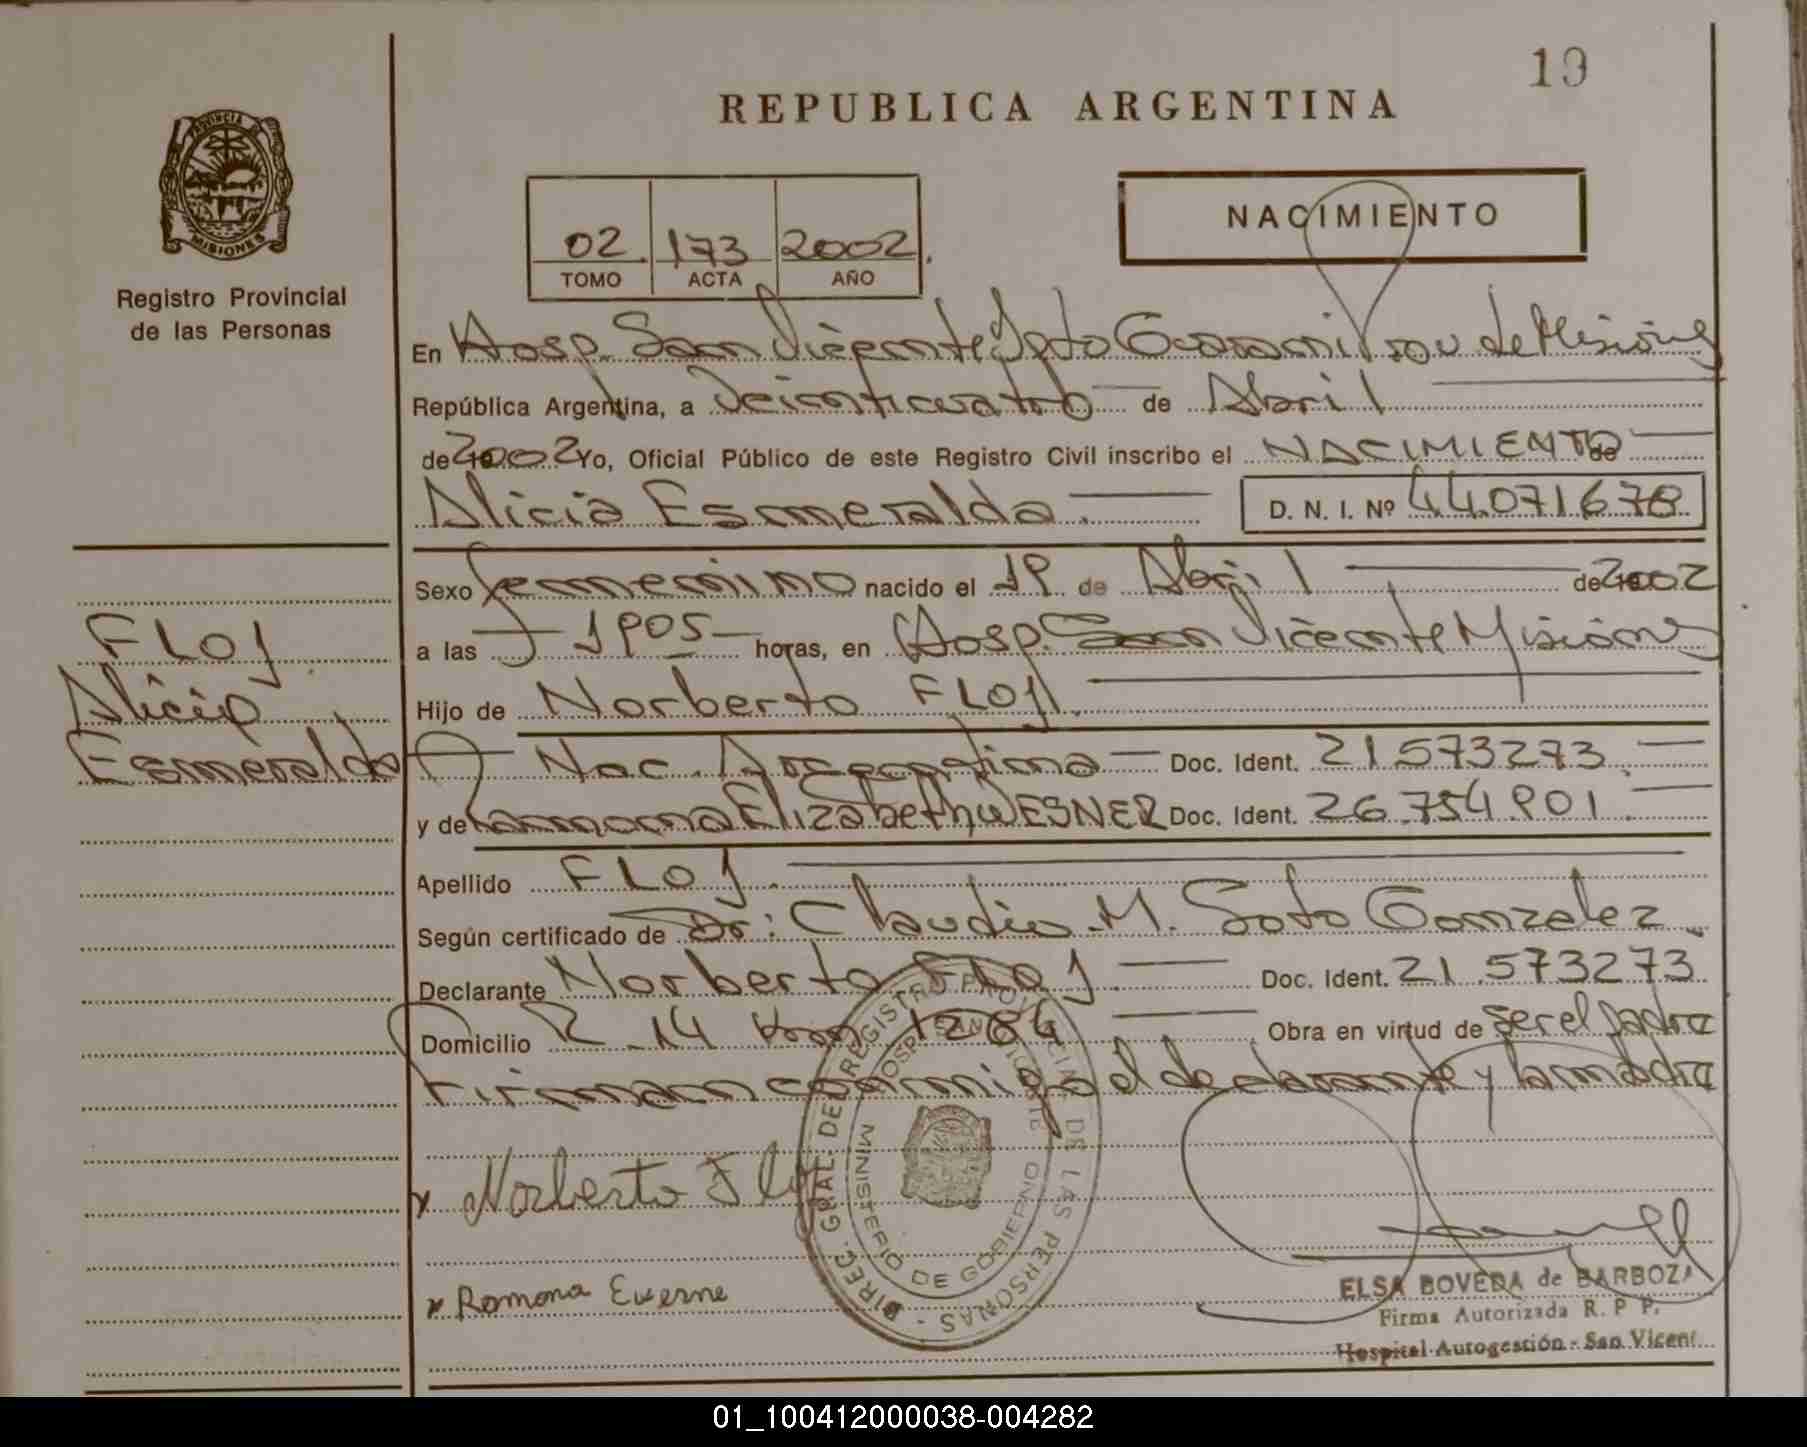 19
REPUBLICA ARGENTINA
PROVINCIA DE
MISIONES
Registro Provincial
de las Personas
02. 173 2002.
TOMO ACTA AÑO
NACIMIENTO
En Hosp. San Vicente Dpto Guarani Prov de Misiones
República Argentina, a Veinticuatro de Abril
de 2002 Yo, Oficial Público de este Registro Civil inscribo el NACIMIENTO de
Alicia Esmeralda. D. N. I. Nº 44.071.678
Sexo femenino nacido el 19 de Abril de 2002
a las 1905 horas, en Hosp. San Vicente Misiones
FLOJ.
Alicia
Esmeralda
Hijo de Norberto FLOJ.
Nac. Argentina Doc. Ident. 21.573273.
y de Ramona Elizabeth WESNER Doc. Ident. 26.754.901.
Apellido FLOJ.
Según certificado de Dr: Claudio M. Soto Gonzalez
Declarante Norberto FLOJ. Doc. Ident. 21.573273
Domicilio R. 14 Km 1264 Obra en virtud de ser el padre
Firman conmigo el declarante y la madre
x Norberto Floj
x Ramona Euerne
DIREC. GRAL. DEL REGISTRO PROVINCIAL DE LAS PERSONAS -
HOSP. SAN VICENTE
MINISTERIO DE GOBIERNO
ELSA BOVEDA de BARBOZA
Firma Autorizada R. P P.
Hospital Autogestión - San Vicent
01_100412000038-004282